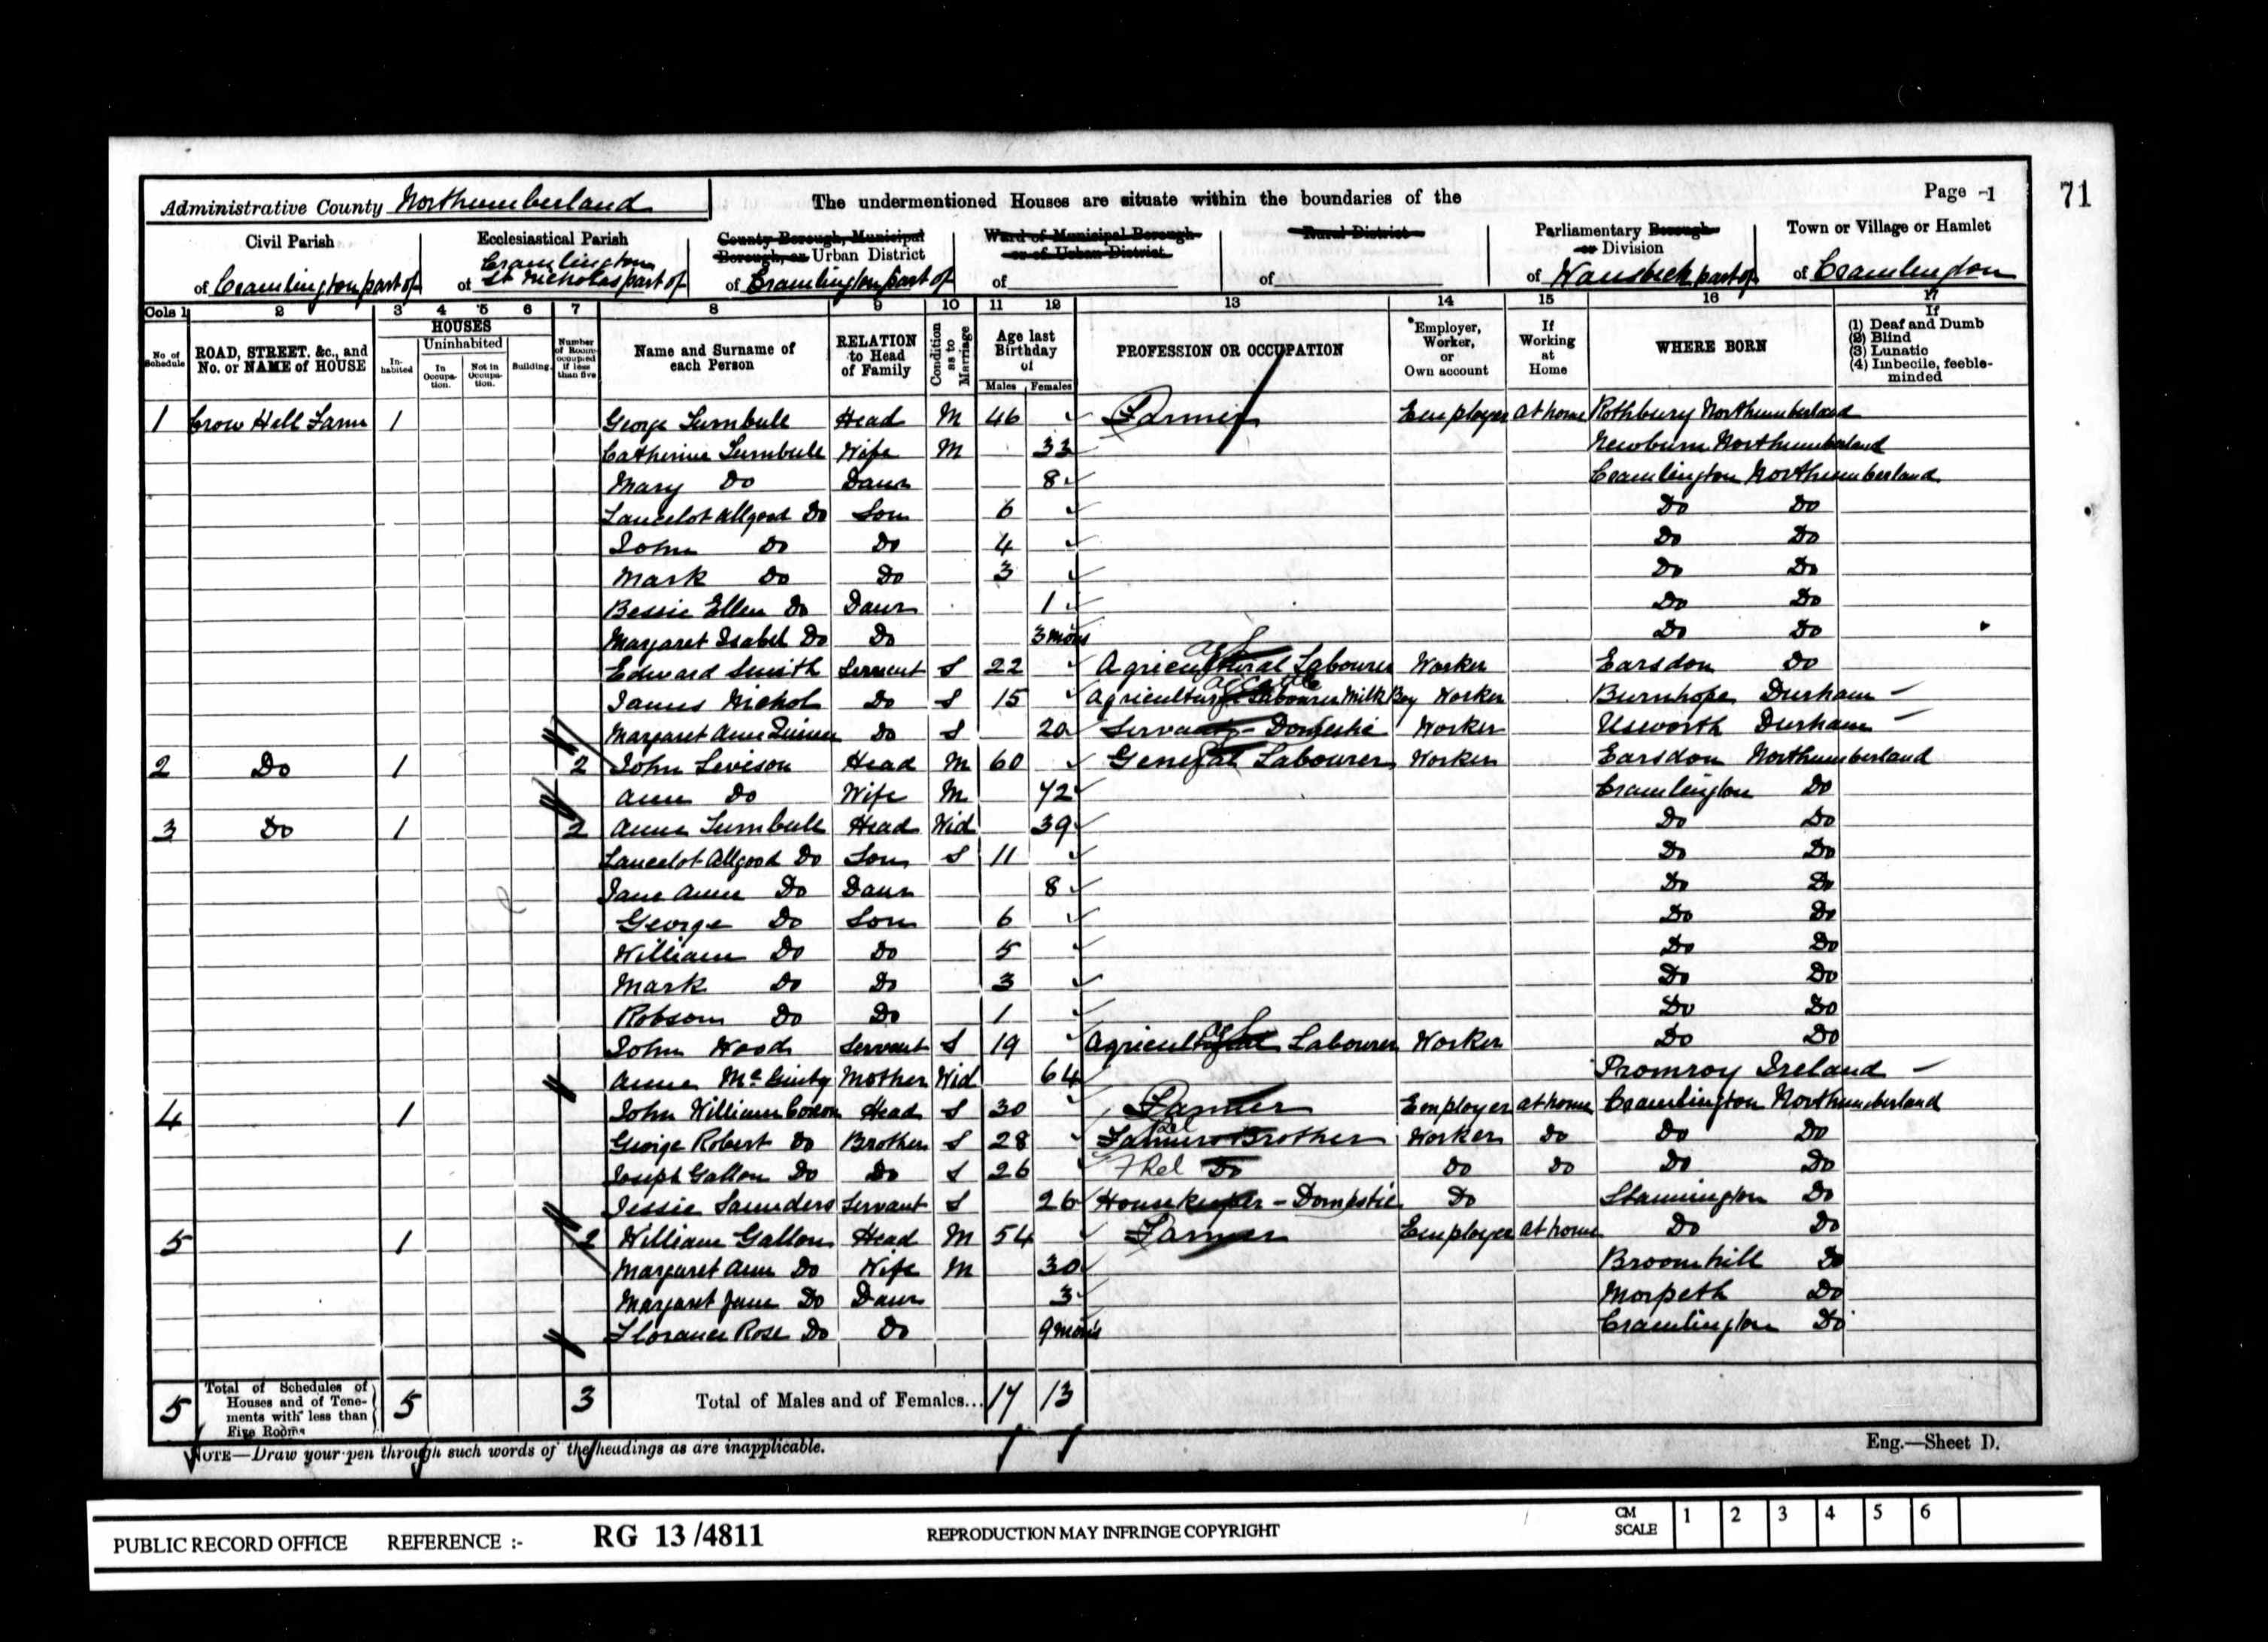 Administrative County Northumberland
The undermentioned Houses are situate within the boundaries of the
Page -1
71
Civil Parish
of Cramlington part of
Ecclesiastical Parish
Cramlington
of St Nicholas part of
County Borough, Municipal
Borough, or Urban District
of Cramlington part of
Ward of Municipal Borough
or of Urban District
of
Rural District
of
Parliamentary Borough
or Division
of Wansbeck part of
Town or Village or Hamlet
of Cramlington
Cols 1 2 3 4 5 6 7 8 9 10 11 12 13 14 15 16 17
No of Schedule
ROAD, STREET, &c., and No. or NAME of HOUSE
HOUSES
Inhabited
Uninhabited
In Occupation.
Not in Occupation.
Building.
Number of Rooms occupied if less than five
Name and Surname of each Person
RELATION to Head of Family
Condition as to Marriage
Age last Birthday of
Males
Females
PROFESSION OR OCCUPATION
Employer, Worker, or Own account
If Working at Home
WHERE BORN
If
(1) Deaf and Dumb
(2) Blind
(3) Lunatic
(4) Imbecile, feeble-minded
1 Crow Hall Farm 1 George Turnbull Head M 46 Farmer Employer at home Rothbury Northumberland
Catherine Turnbull Wife M 33 Newburn Northumberland
Mary Do Daur 8 Cramlington Northumberland
Lancelot Allgood Do Son 6 Do Do
John Do Do 4 Do Do
Mark Do Do 3 Do Do
Bessie Ellen Do Daur 1 Do Do
Margaret Isabel Do Do 3 mons Do Do
Edward Smith Servant S 22 Agricultural Labourer Worker Earsdon Do
James Nichol Do S 15 Labourer Milk Boy Worker Burnhope Durham
Margaret Anne Do S 20 Servant - Domestic Worker Usworth Durham
2 Do 1 2 John Levison Head M 60 General Labourer Worker Earsdon Northumberland
Ann Do Wife M 72 Cramlington Do
3 Do 1 2 Anne Turnbull Head Wid 39 Do Do
Lancelot Allgood Do Son S 11 Do Do
Jane Anne Do Daur 8 Do Do
George Do Son 6 Do Do
William Do Do 5 Do Do
Mark Do Do 3 Do Do
Robson Do Do 1 Do Do
John Wood Servant S 19 Agricultural Labourer Worker Do Do
Anne Mc Ginty Mother Wid 64 Promroy Ireland
4 1 John William Coxon Head S 30 Farmer Employer at home Cramlington Northumberland
George Robert Do Brother S 28 Farmers Brother Worker Do Do Do
Joseph Gallon Do Do S 26 F Rel Do Do Do Do Do
Jessie Saunders Servant S 26 Housekeeper - Domestic Do Stannington Do
5 1 2 William Gallon Head M 54 Farmer Employer at home Do Do
Margaret Ann Do Wife M 30 Broomhill Do
Margaret Jane Do Daur 3 Morpeth Do
Florance Rose Do Do 9 mons Cramlington Do
5 Total of Schedules of Houses and of Tenements with less than Five Rooms 5 3 Total of Males and of Females... 17 13
NOTE—Draw your pen through such words of the headings as are inapplicable.
Eng.—Sheet D.
PUBLIC RECORD OFFICE REFERENCE :- RG 13/4811 REPRODUCTION MAY INFRINGE COPYRIGHT CM SCALE 1 2 3 4 5 6